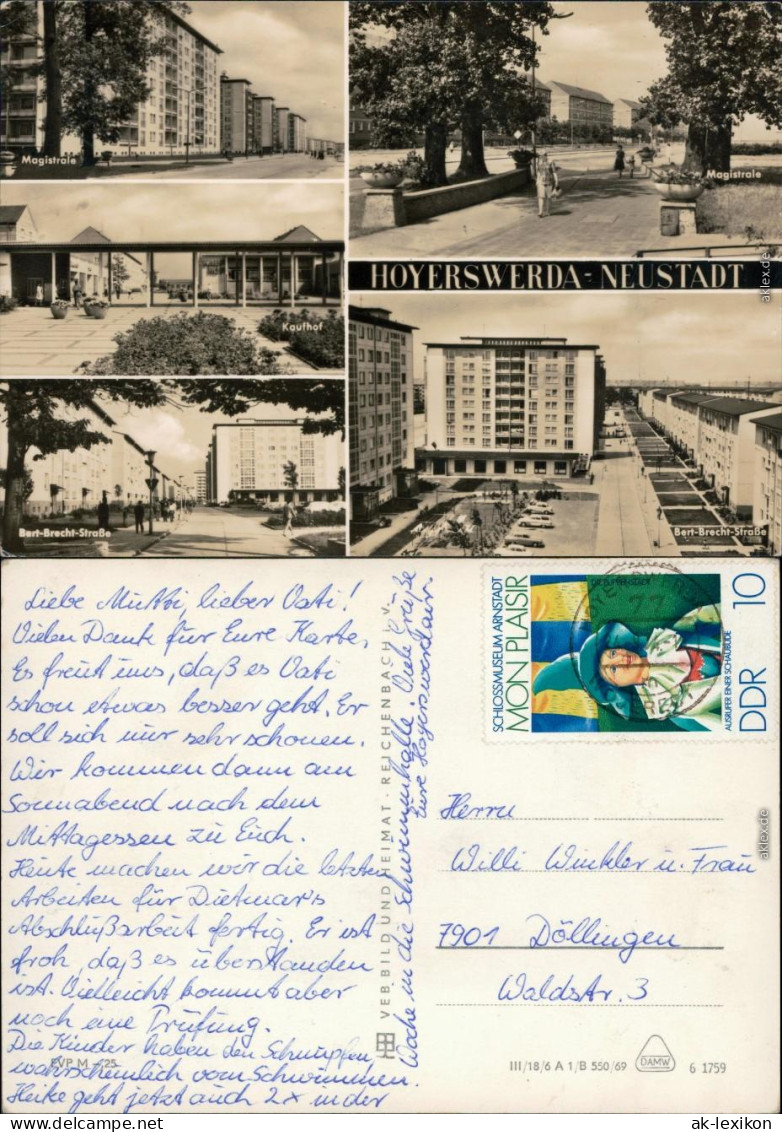 Magistrale
Magistrale
HOYERSWERDA-NEUSTADT
Kaufhof
Bert-Brecht-Straße
Bert-Brecht-Straße
aklex.de
Liebe Mutti, lieber Vati!
Vielen Dank für Eure Karte.
Es freut uns, daß es Vati
schon etwas besser geht. Er
soll sich nur sehr schonen.
Wir kommen dann am
Sonnabend nach dem
Mittagessen zu Euch.
Heute machen wir die letzten
Arbeiten für Dietmar's
Abschlußarbeit fertig. Er ist
froh, daß es überstanden
ist. Vielleicht kommt aber
noch eine Prüfung.
Die Kinder haben den Schnupfen,
wahrscheinlich vom Schwimmen.
Heike geht jetzt auch 2x in der
Woche in die Schwimmhalle. Viele Grüße
Eure Hoyerswerdaer.
EVP M -,25
VEB BILD UND HEIMAT · REICHENBACH i. V.
SCHLOSSMUSEUM ARNSTADT
MON PLAISIR
AUSRUFER EINER SCHAUBUDE
DDR 10
77
Herrn
Willi Winkler u. Frau
7901 Döllingen
Waldstr. 3
III/18/6 A 1/B 550/69
DAMW
6 1759
aklex.de
ak-lexikon